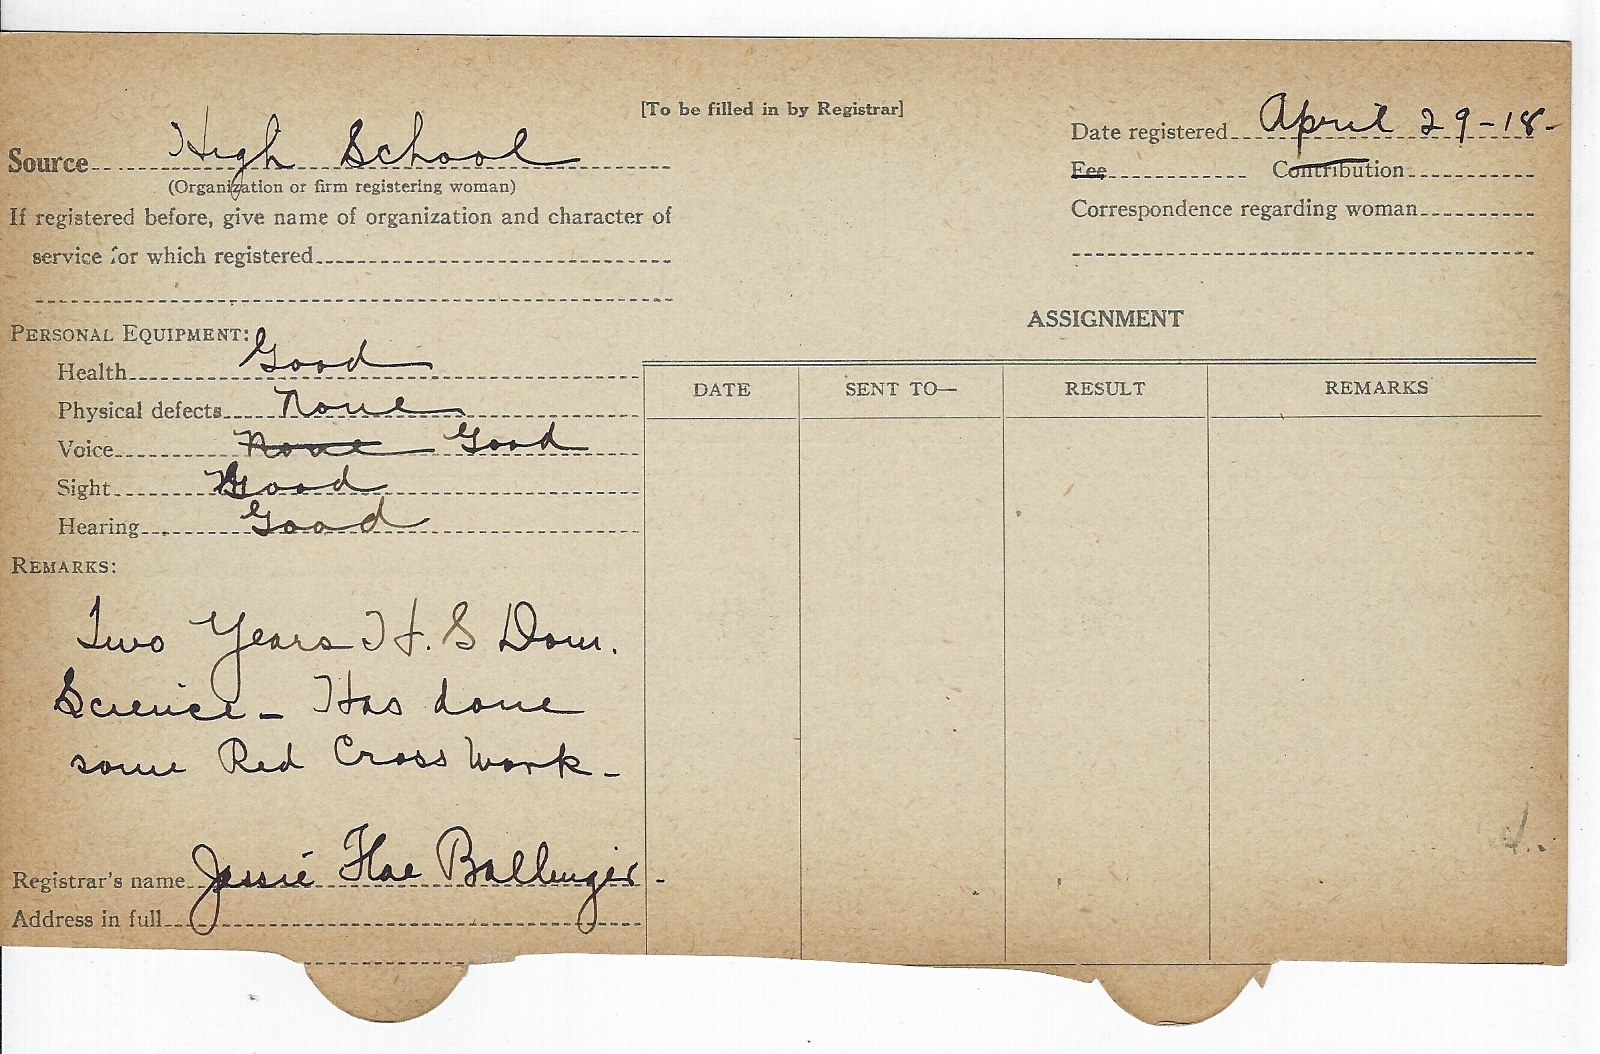 [To be filled in by Registrar]
Source High School
(Organization or firm registering woman)
If registered before, give name of organization and character of
service for which registered
Date registered April 29-18-
Fee Contribution
Correspondence regarding woman
PERSONAL EQUIPMENT:
Health Good
Physical defects None
Voice None Good
Sight Good
Hearing Good
REMARKS:
Two Years H.S Dom.
Science - Has done
some Red Cross Work -
Registrar's name Jessie Ballinger -
Address in full
ASSIGNMENT
DATE SENT TO— RESULT REMARKS